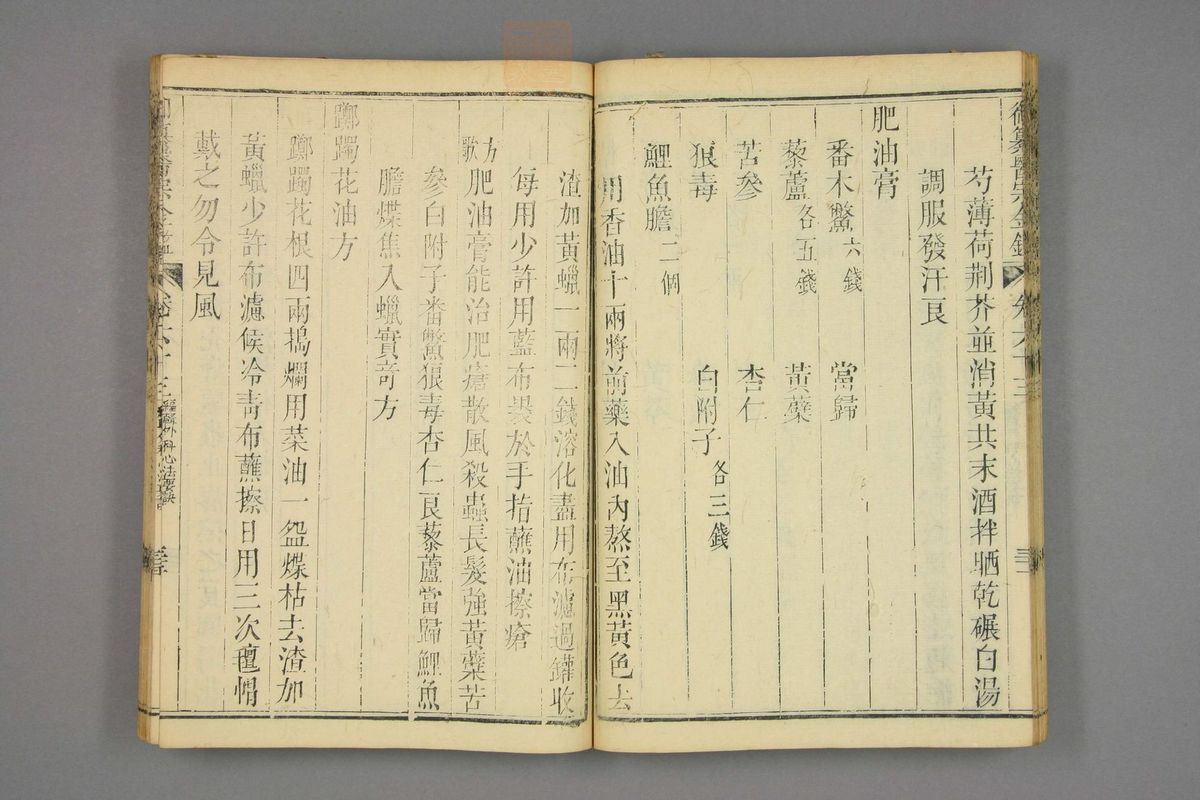 芍薄荷荆芥並消黃共末酒拌晒乾碾白湯
調服發汗良
肥油膏
番木鱉六錢 當歸
藜蘆各五錢 黃蘗
苦參 杏仁
狼毒 白附子各三錢
鯉魚膽二個
用香油十兩將前藥入油內熬至黑黃色去
渣加黃蠟一兩二錢溶化盡用布濾過鑵收
每用少許用藍布褁於手指蘸油擦瘡
方歌 肥油膏能治肥瘡散風殺蟲長髮強黃蘗苦
參白附子番鱉狼毒杏仁良藜蘆當歸鯉魚
膽煠焦入蠟實竒方
躑躅花油方
躑躅花根四兩搗爛用菜油一盌煠枯去渣加
黃蠟少許布濾候冷青布蘸擦日用三次氊帽
戴之勿令見風